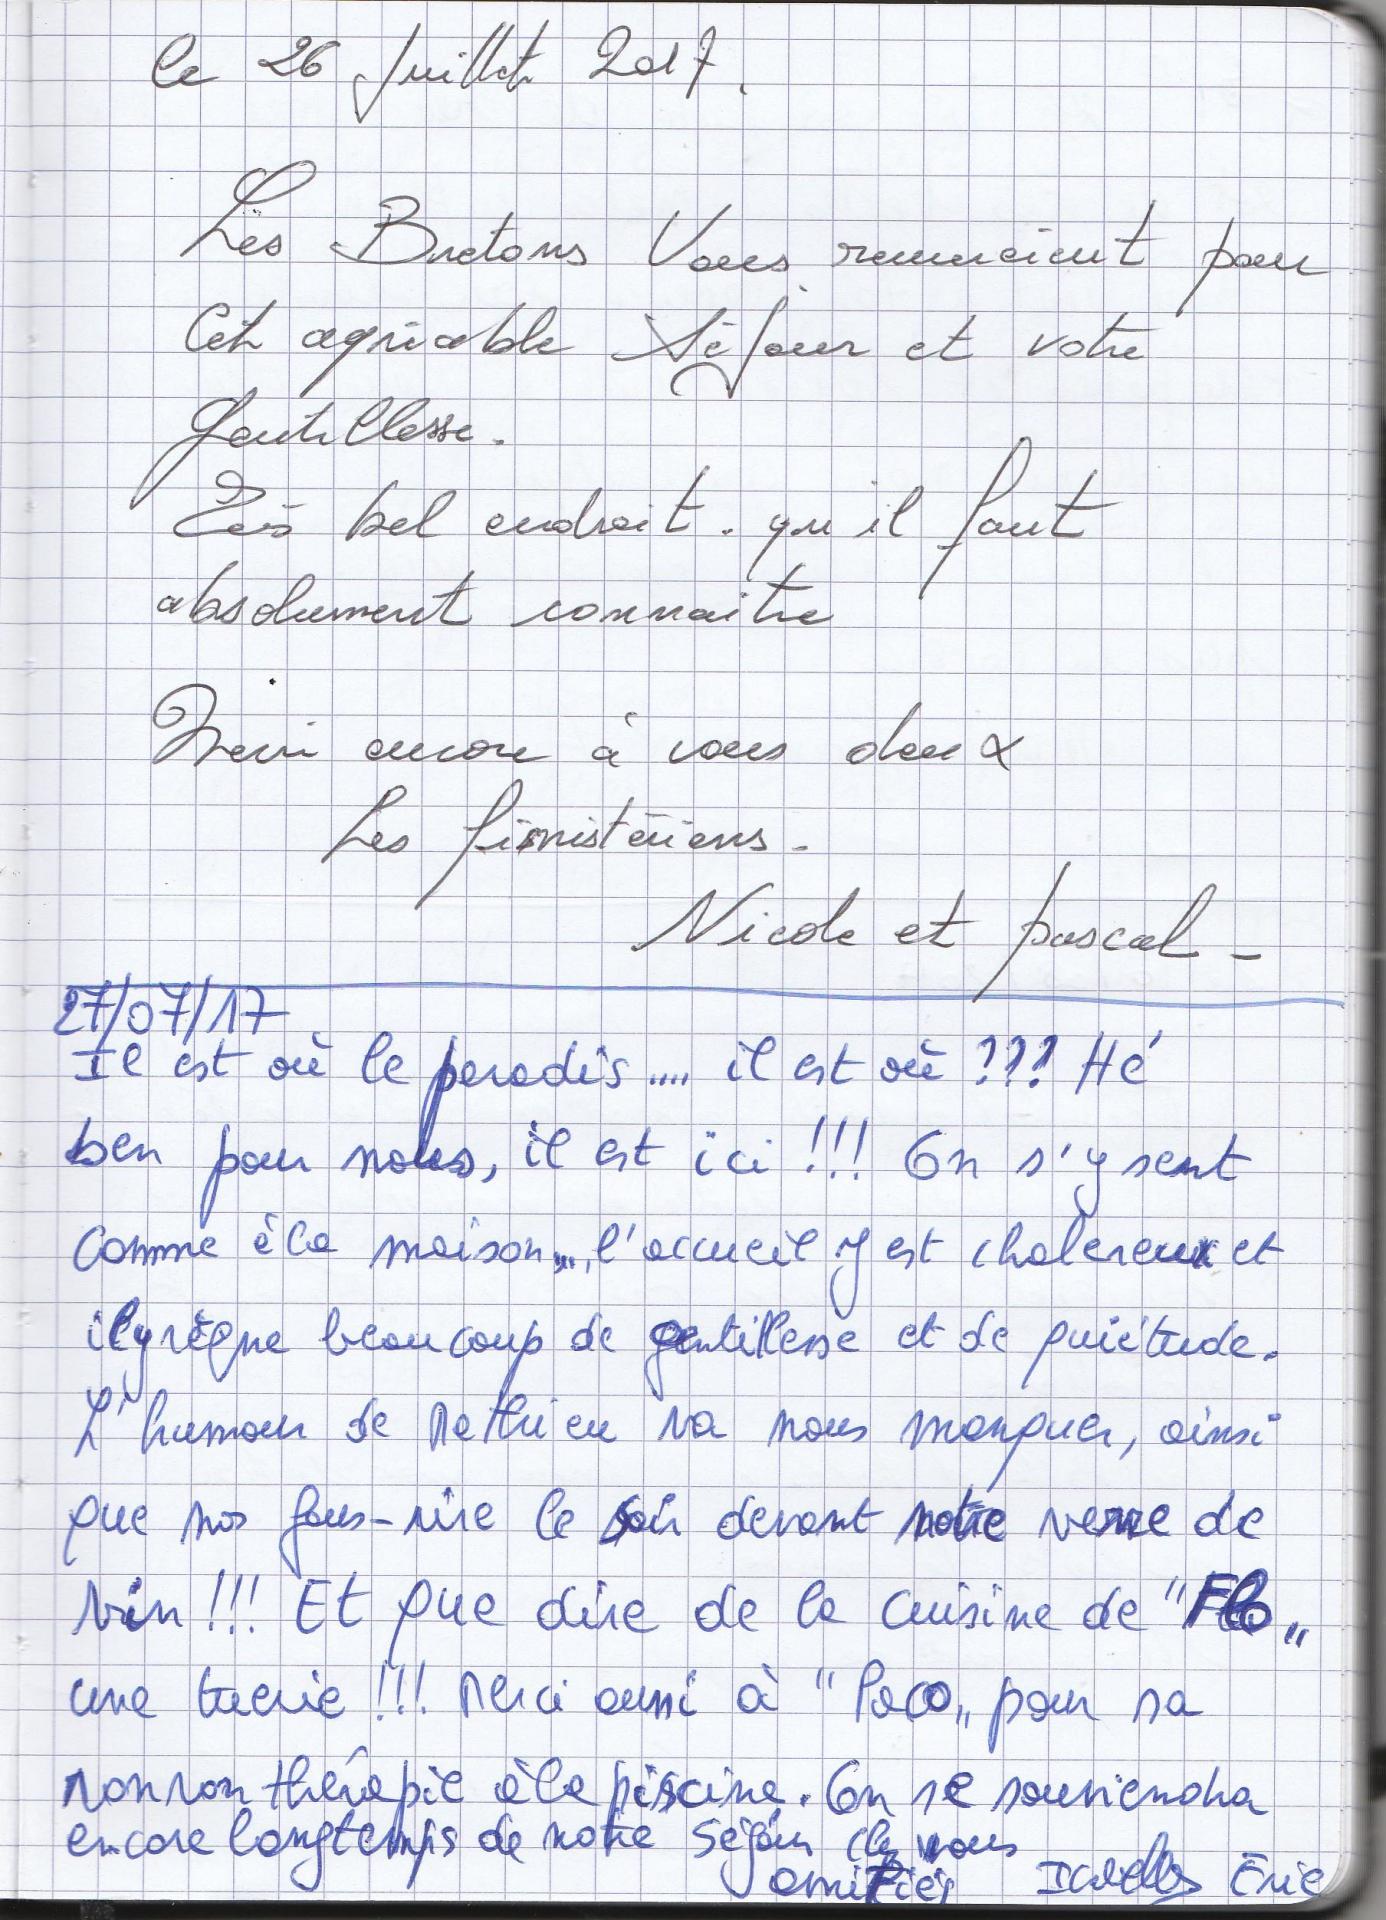 le 26 Juillet 2017.
Les Bretons Vous remercient pour
Cet agréable Séjour et votre
gentillesse.
Très bel endroit. qu'il faut
absolument connaitre
Merci encore à vous deux
Les finistériens.
Nicole et pascal -
27/07/17
Il est où le paradis.... il est où ??? Hé
ben pour nous, il est ici !!! On s'y sent
comme à la maison..., l'accueil y est chaleureux et
il y règne beaucoup de gentillesse et de quiétude.
L'humour de Mathieu va nous manquer, ainsi
que nos fous-rire le soir devant notre verre de
vin !!! Et que dire de la cuisine de "Flo"
une tuerie !!! Merci aussi à "Paco" pour sa
ronron thérapie à la piscine. On se souviendra
encore longtemps de notre séjour chez vous
amitiés Isabelle Eric